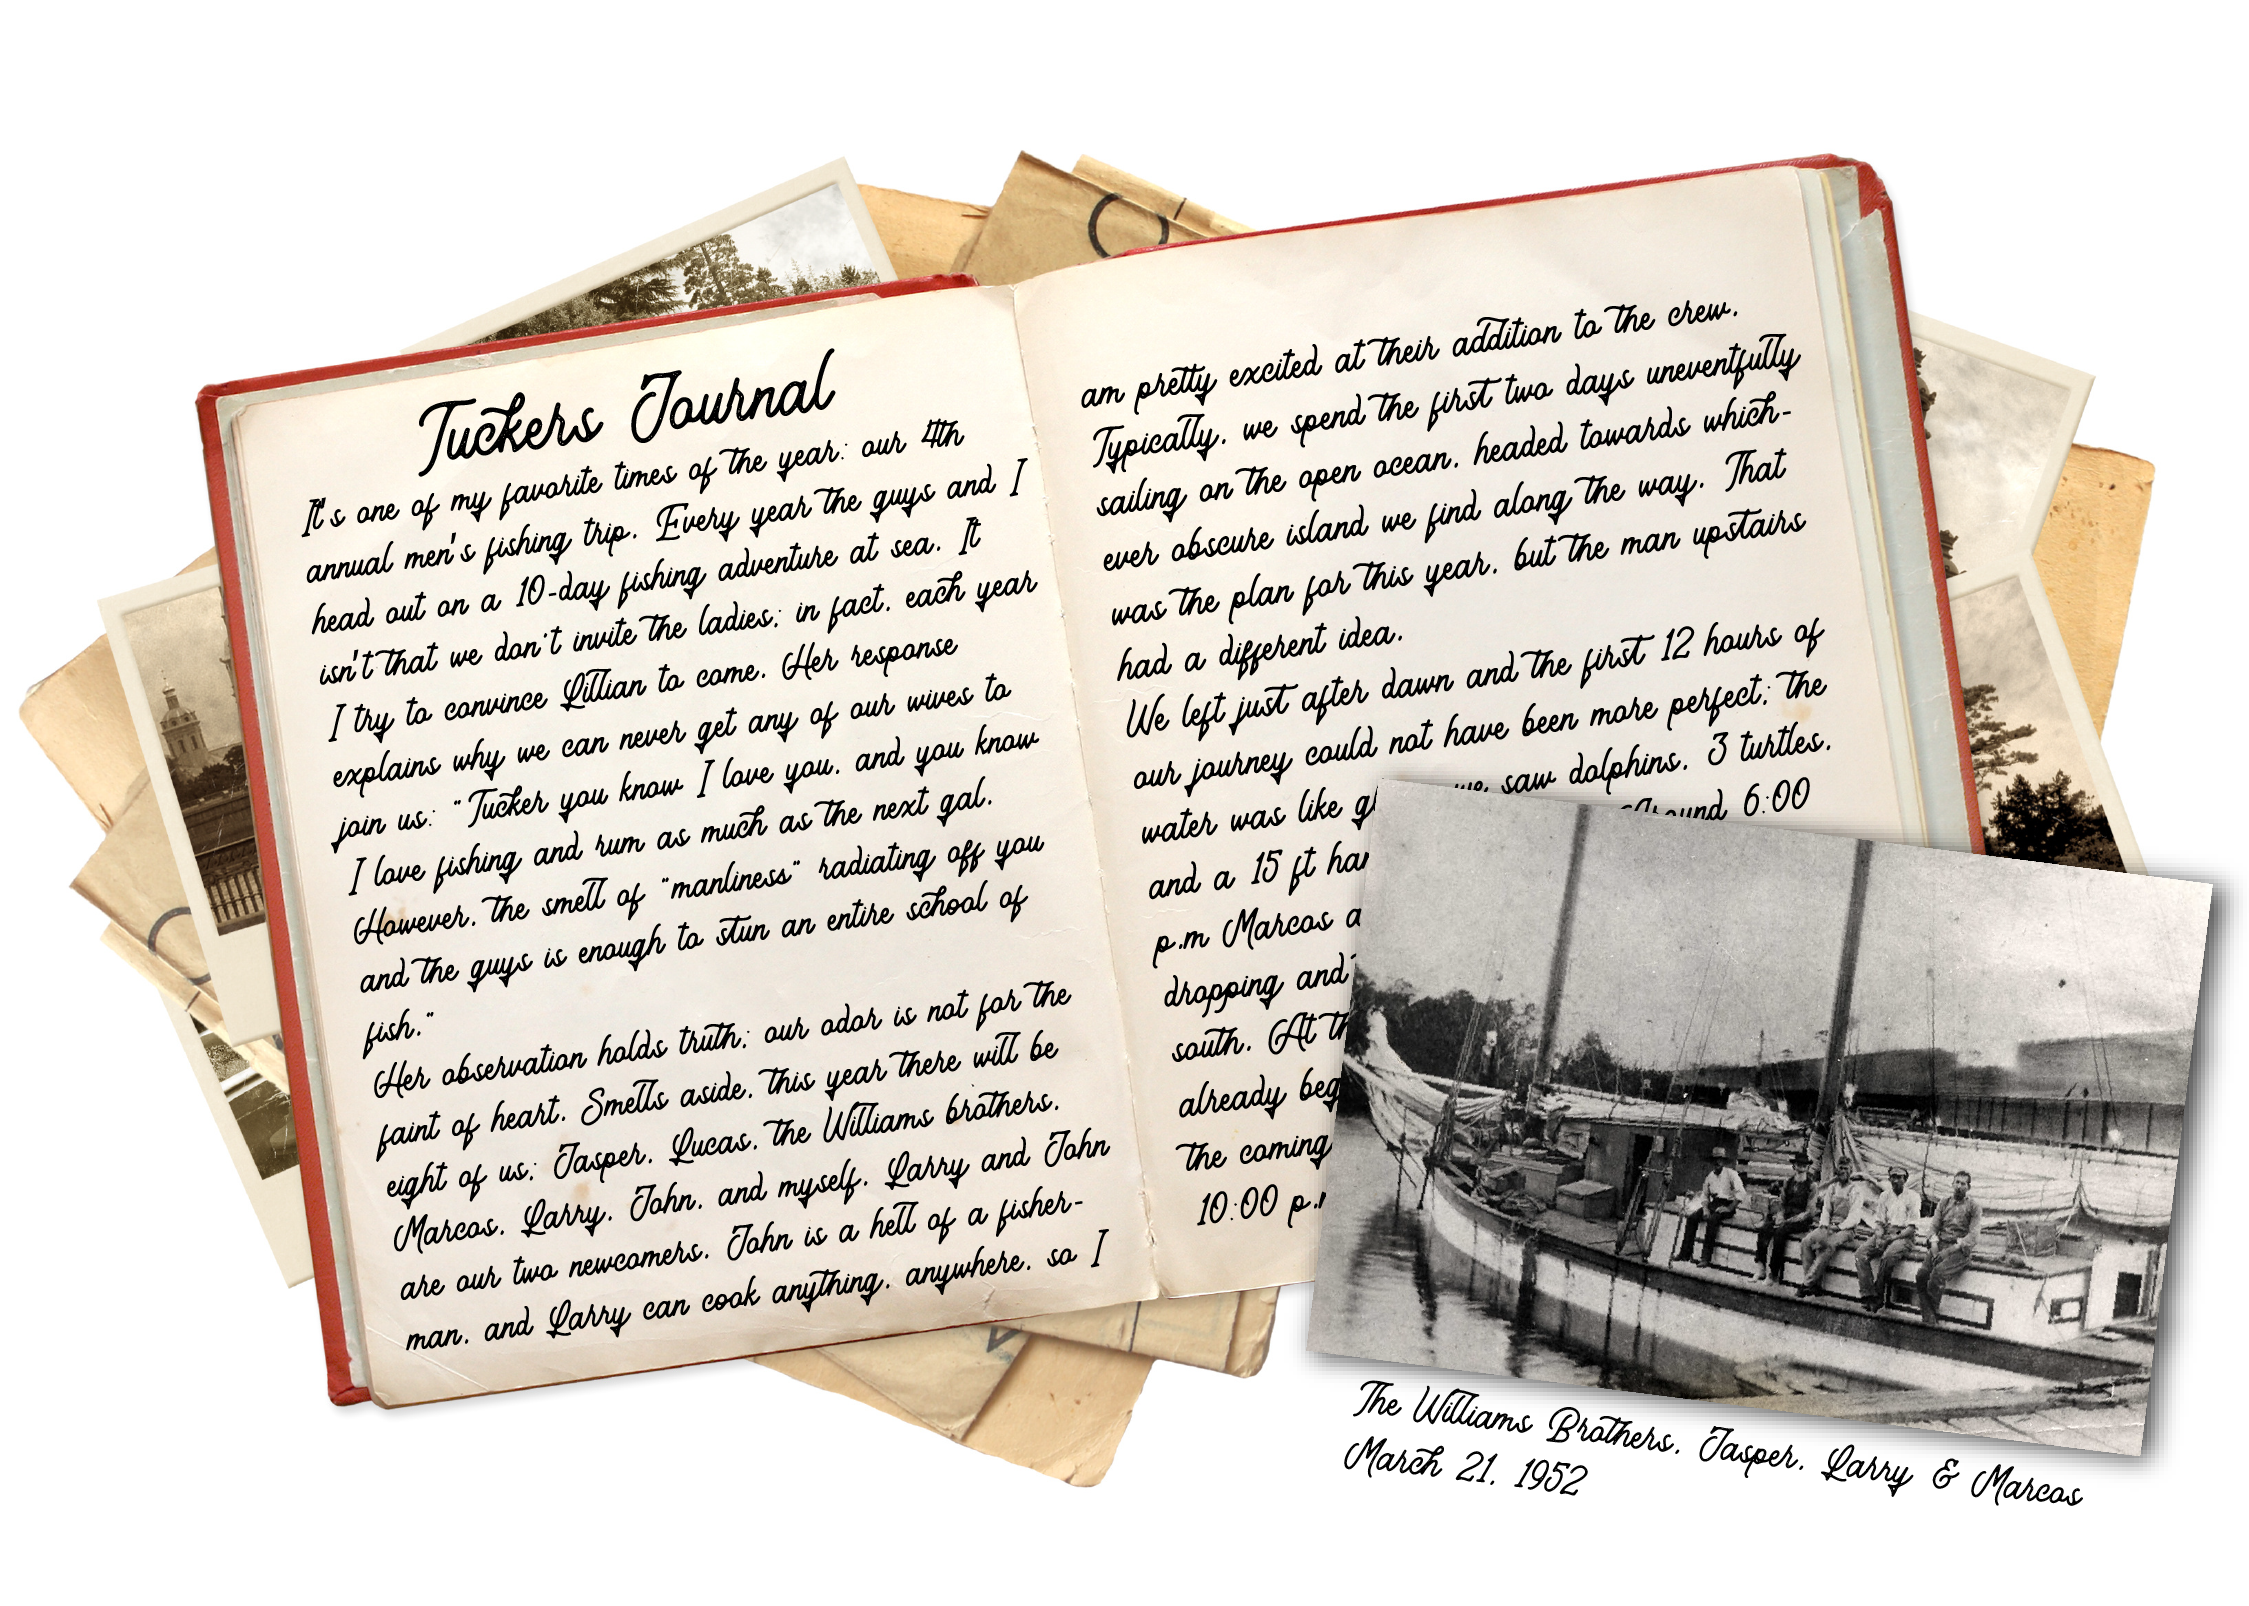 Tuckers Journal
It's one of my favorite times of the year; our 4th
annual men's fishing trip. Every year the guys and I
head out on a 10-day fishing adventure at sea. It
isn't that we don't invite the ladies; in fact, each year
I try to convince Lillian to come. Her response
explains why we can never get any of our wives to
join us: "Tucker you know I love you, and you know
I love fishing and rum as much as the next gal.
However, the smell of "manliness" radiating off you
and the guys is enough to stun an entire school of
fish."
Her observation holds truth; our odor is not for the
faint of heart. Smells aside, this year there will be
eight of us; Jasper, Lucas, the Williams brothers,
Marcos, Larry, John, and myself. Larry and John
are our two newcomers. John is a hell of a fisher-
man, and Larry can cook anything, anywhere, so I
am pretty excited at their addition to the crew.
Typically, we spend the first two days uneventfully
sailing on the open ocean, headed towards which-
ever obscure island we find along the way. That
was the plan for this year, but the man upstairs
had a different idea.
We left just after dawn and the first 12 hours of
our journey could not have been more perfect; the
water was like we saw dolphins, 3 turtles,
and a 15 ft Around 6:00
p.m Marcos
dropping and
south. At
already
the coming
10:00
The Williams Brothers, Jasper, Larry & Marcos
March 21, 1952